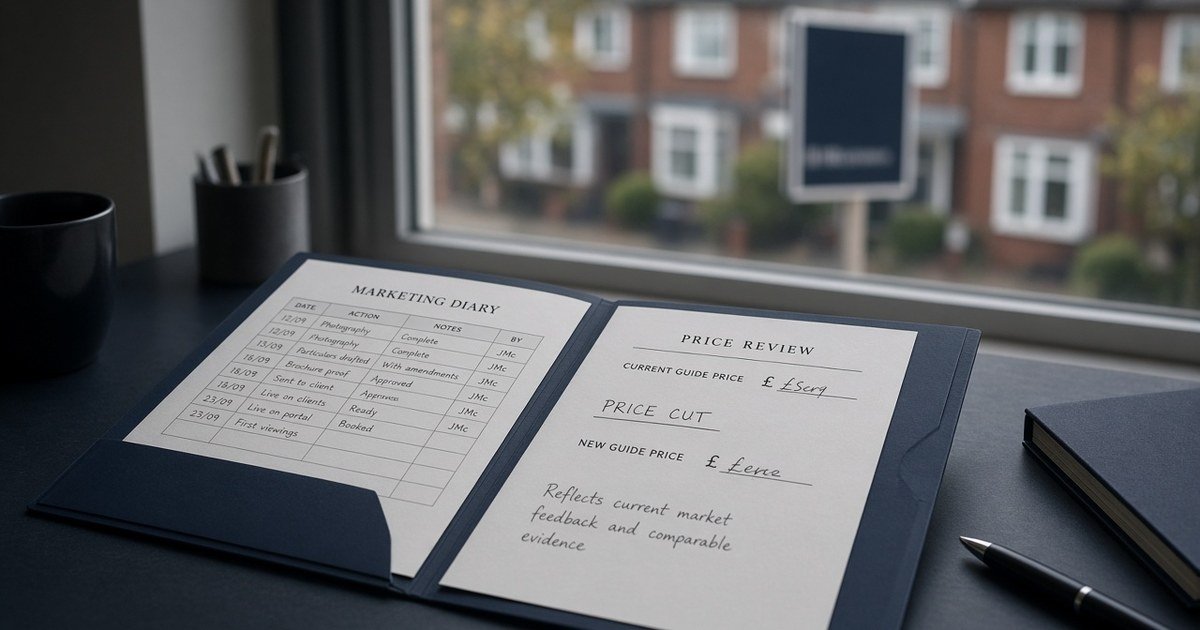 MARKETING DIARY
DATE ACTION NOTES BY
12/09 Photography Complete JMc
12/09 Photography Complete JMc
13/09 Particulars drafted With amendments JMc
18/09 Brochure proof Approved JMc
18/09 Sent to client JMc
23/09 Live on clients Ready JMc
23/09 Live on portal Booked
First viewings
PRICE REVIEW
CURRENT GUIDE PRICE £
PRICE CUT
NEW GUIDE PRICE £
Reflects current market
feedback and comparable
evidence